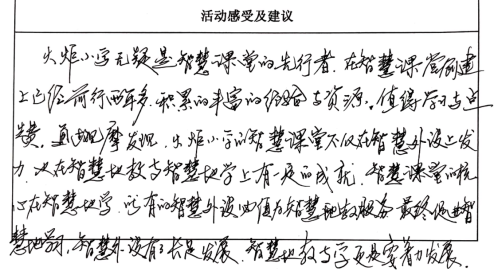 活动感受及建议
火炬小学无疑是智慧课堂的先行者,在智慧课堂创建
上已经前行两年多,积累的丰富的经验与资源。值得学习与点
赞。直观摩发现,火炬小学的智慧课堂不仅在智慧外设上发
力,也在智慧地教与智慧地学上有一定的成就,智慧课堂的核
心在智慧地学,所有的智慧外设必值为智慧地教服务,最终促进智
慧地学,智慧外设有了长足发展,智慧地教与学更是要着力发展。